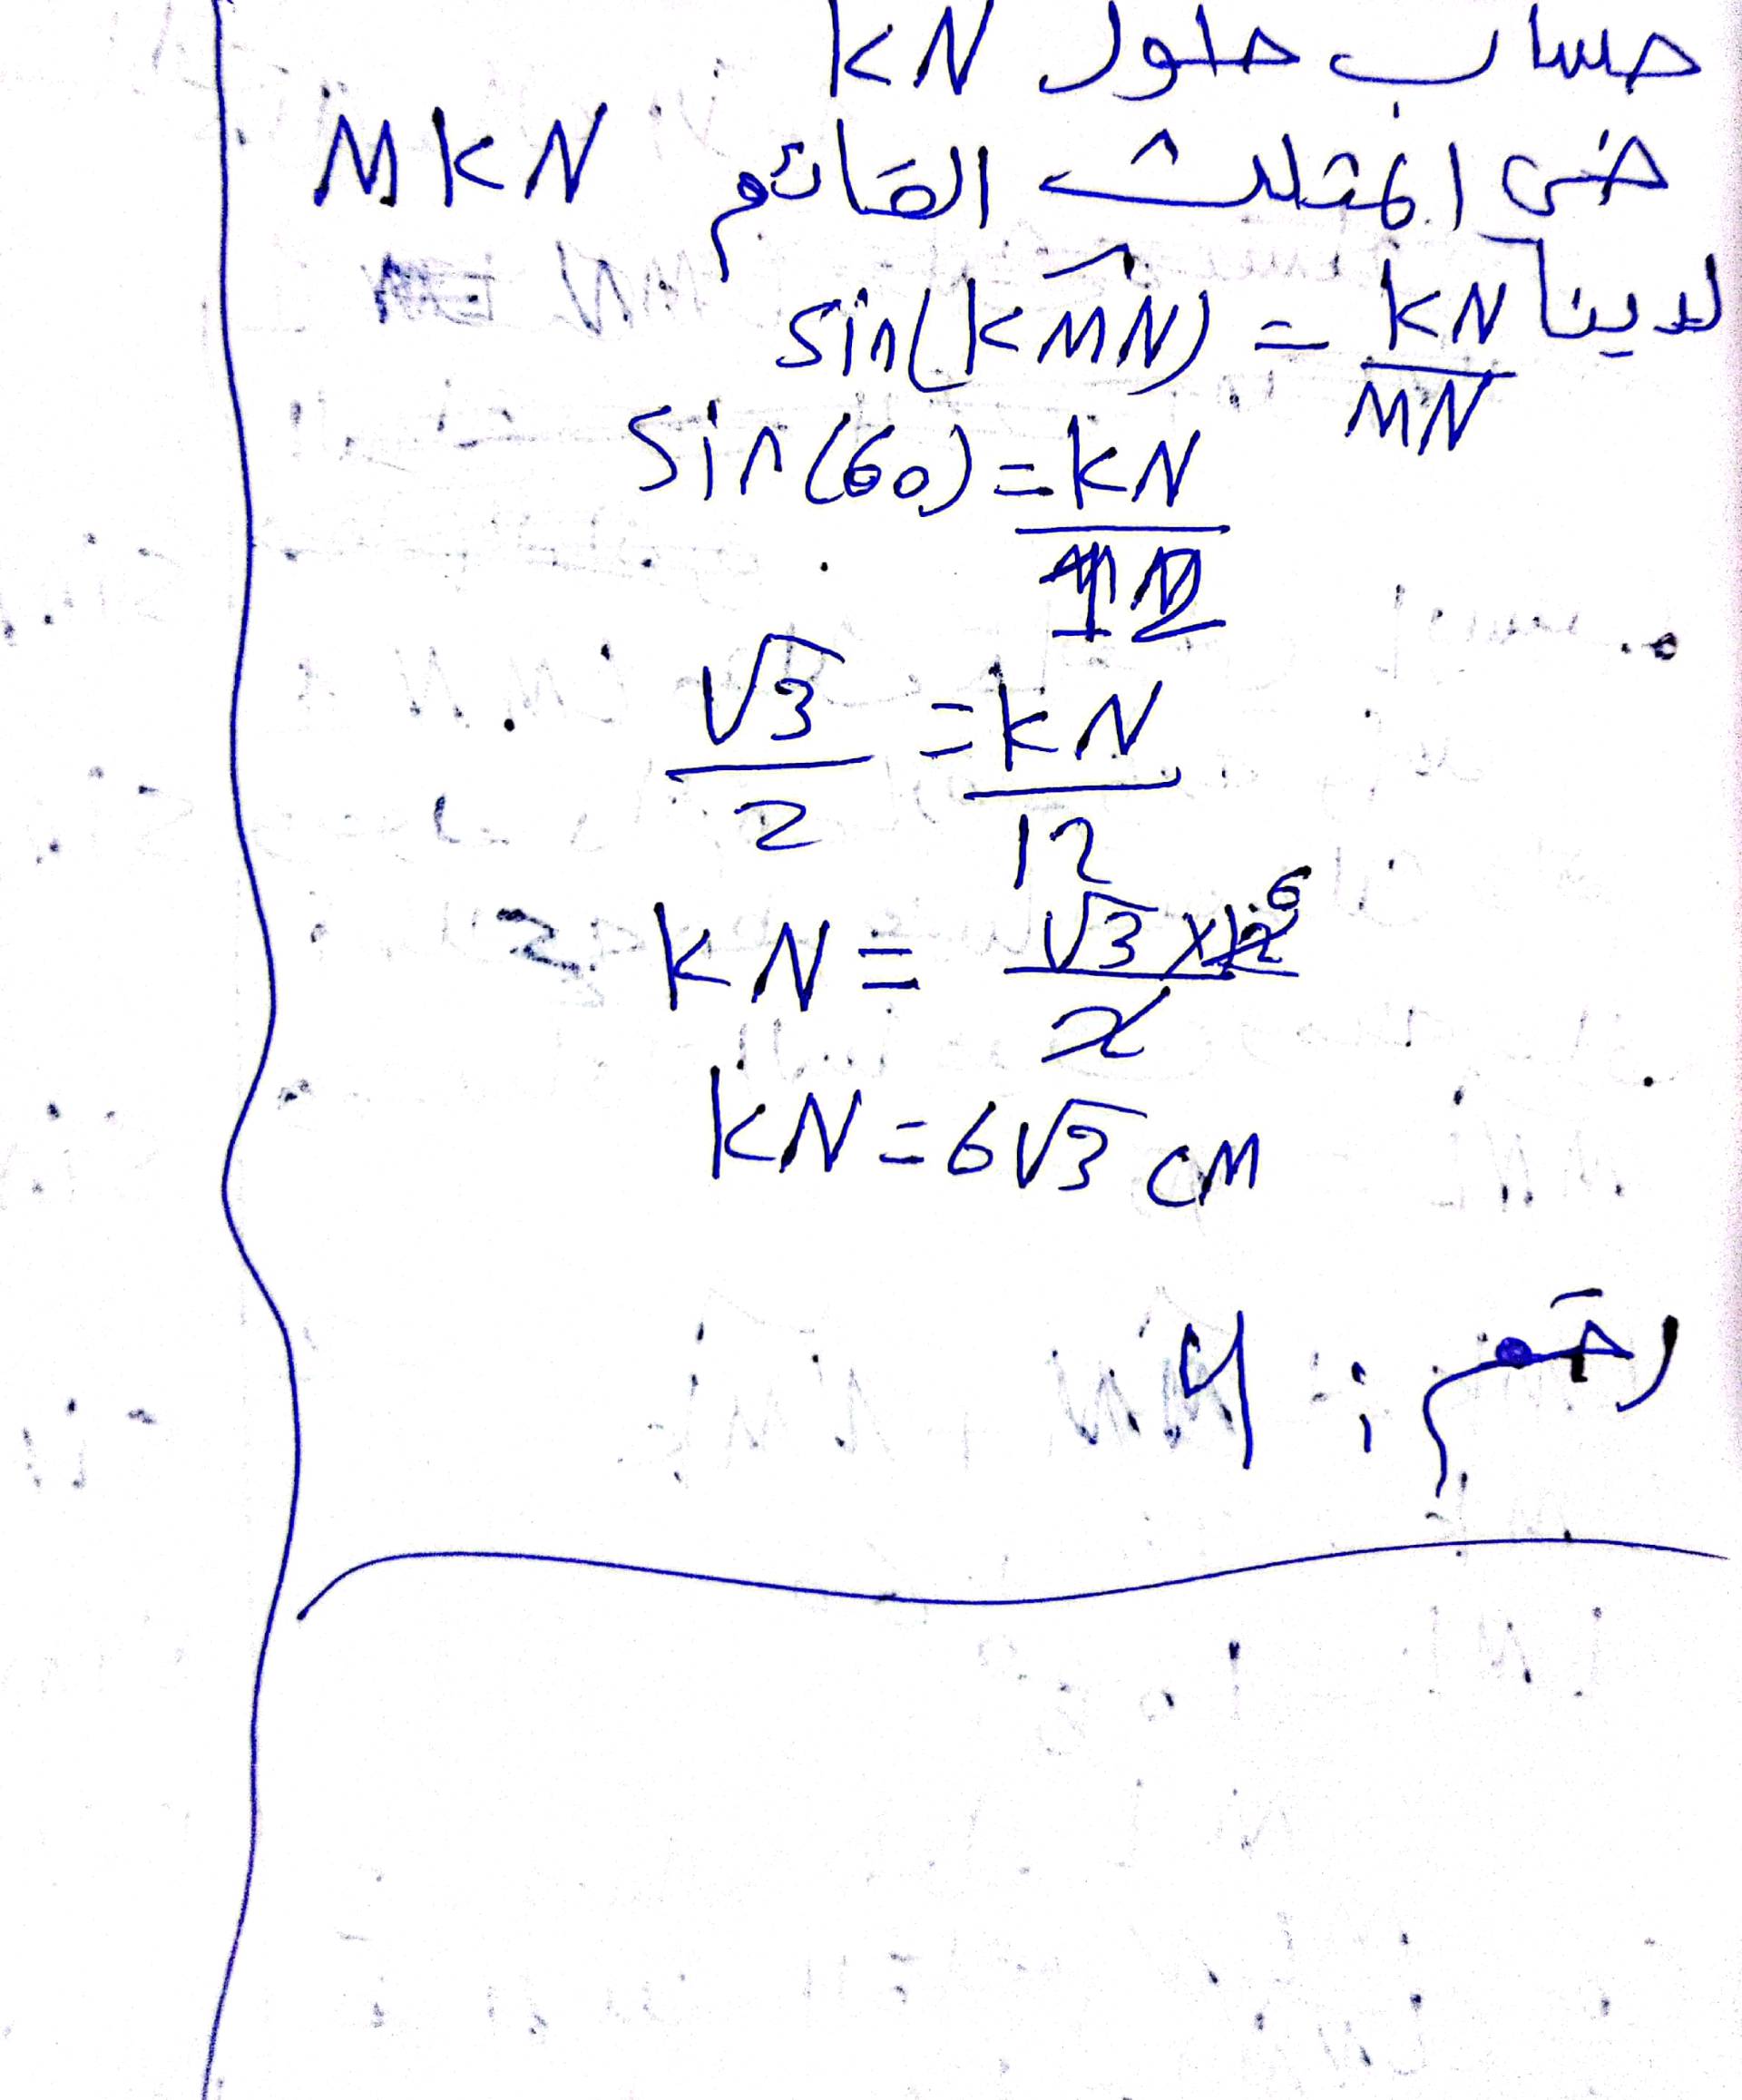 حساب طول KN
في المثلث القائم MKN
لدينا sin(KM̂N) = KN/MN
sin(60) = KN/12
√3/2 = KN/12
KN = √3×12/2 6
KN = 6√3 cm